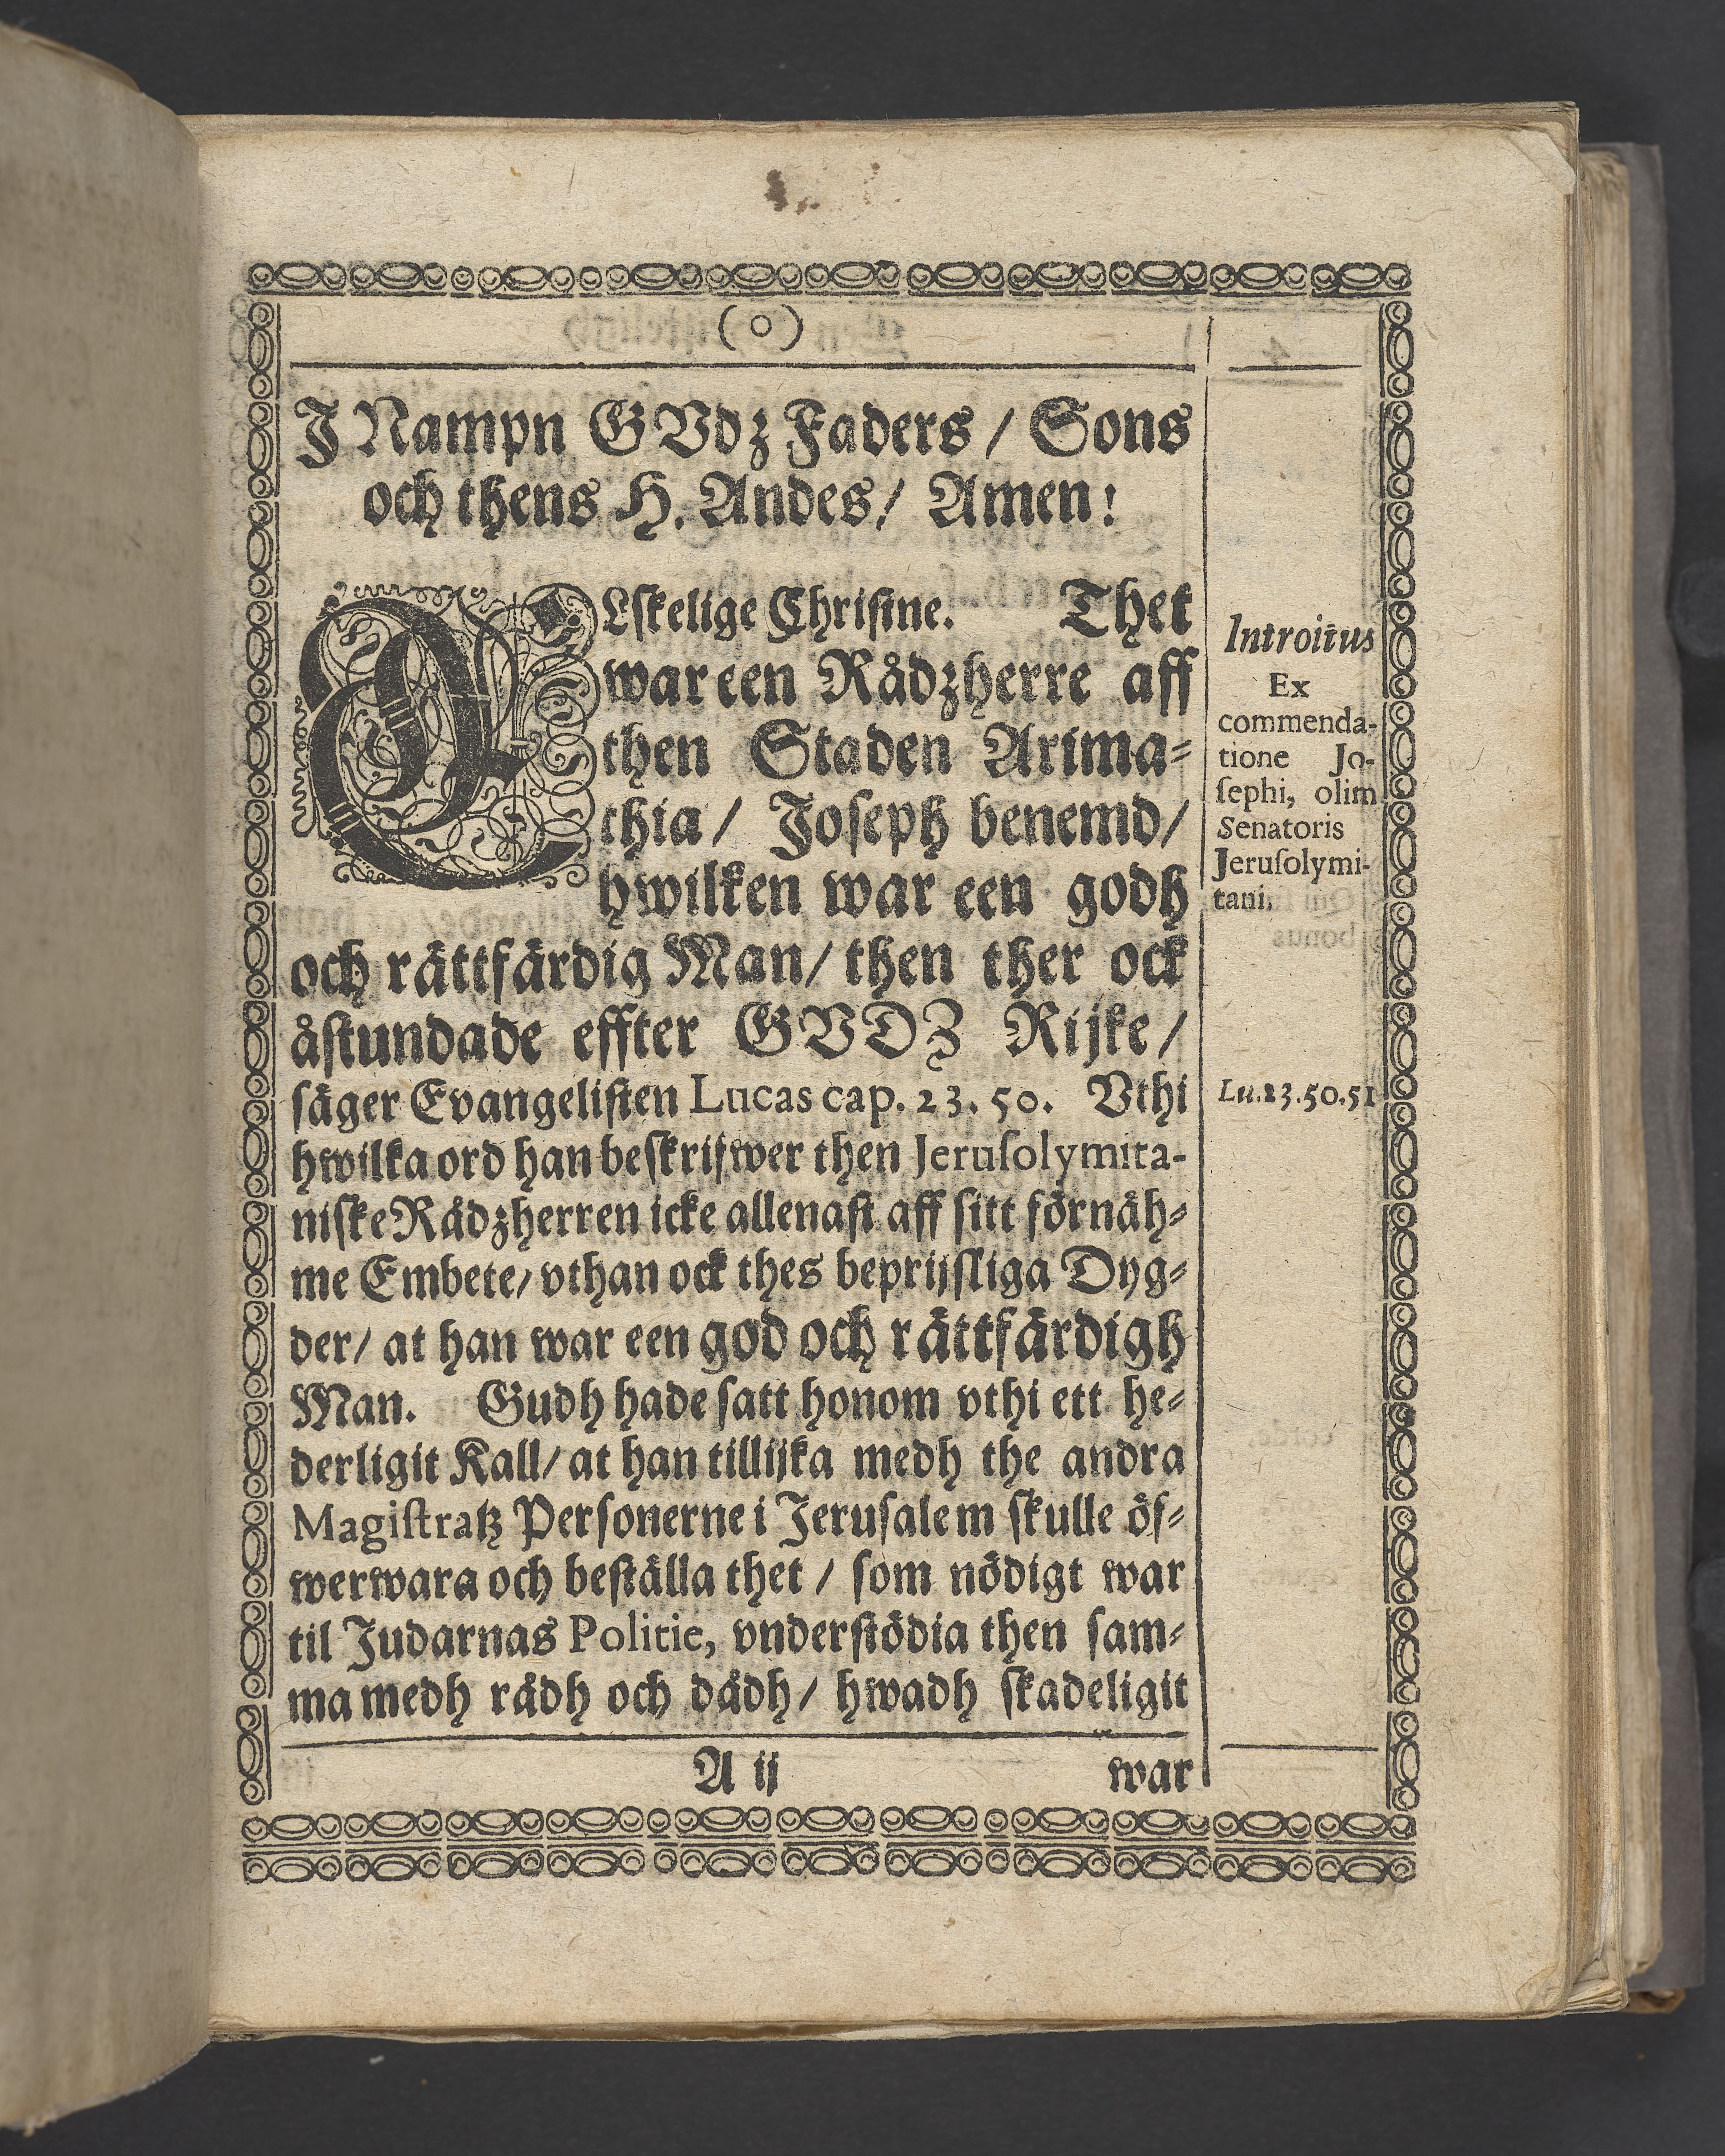 (o)
J Nampn GVdz Faders / Sons
och thens H. Andes / Amen!
ÄLſkelige Chriſtne. Thet
war een Rådzherre aff
then Staden Arima⸗
thia / Joſeph benemd /
hwilken war een godh
och rättfärdig Man / then ther ock
åſtundade effter GVDZ Rijke /
ſäger Evangeliſten Lucas cap. 23. 50. Vthi
hwilka ord han beſkrijwer then Jeruſolymita-
niſke Rådzherren icke allenaſt aff ſitt förnäh⸗
me Embete / vthan ock thes beprijſliga Dyg⸗
der / at han war een god och rättfärdigh
Man. Gudh hade ſatt honom vthi ett he⸗
derligit Kall / at han tillijka medh the andra
Magiſtratz Perſonerne i Jeruſalem ſkulle öf⸗
werwara och beſtälla thet / ſom nödigt war
til Judarnas Politie, vnderſtödia then ſam⸗
ma medh rådh och dådh / hwadh ſkadeligit
A ij war
Introitus
Ex
commenda-
tione Jo-
ſephi, olim
Senatoris
Jeruſolymi-
tani.
Lu.23.50.51